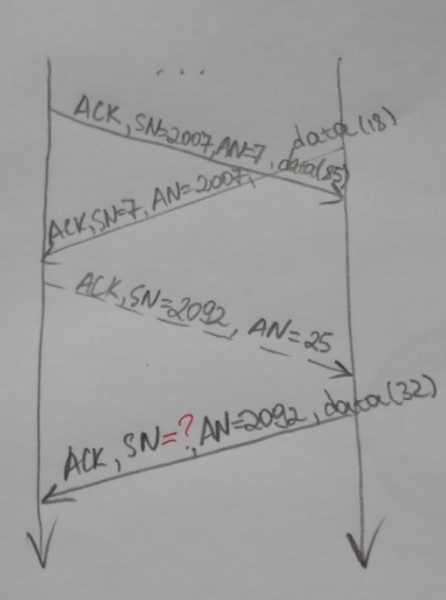 ...
ACK, SN=2007, AN=7, data(85)
ACK, SN=7, AN=2007, data(18)
ACK, SN=2092, AN=25
ACK, SN=?, AN=2092, data(32)